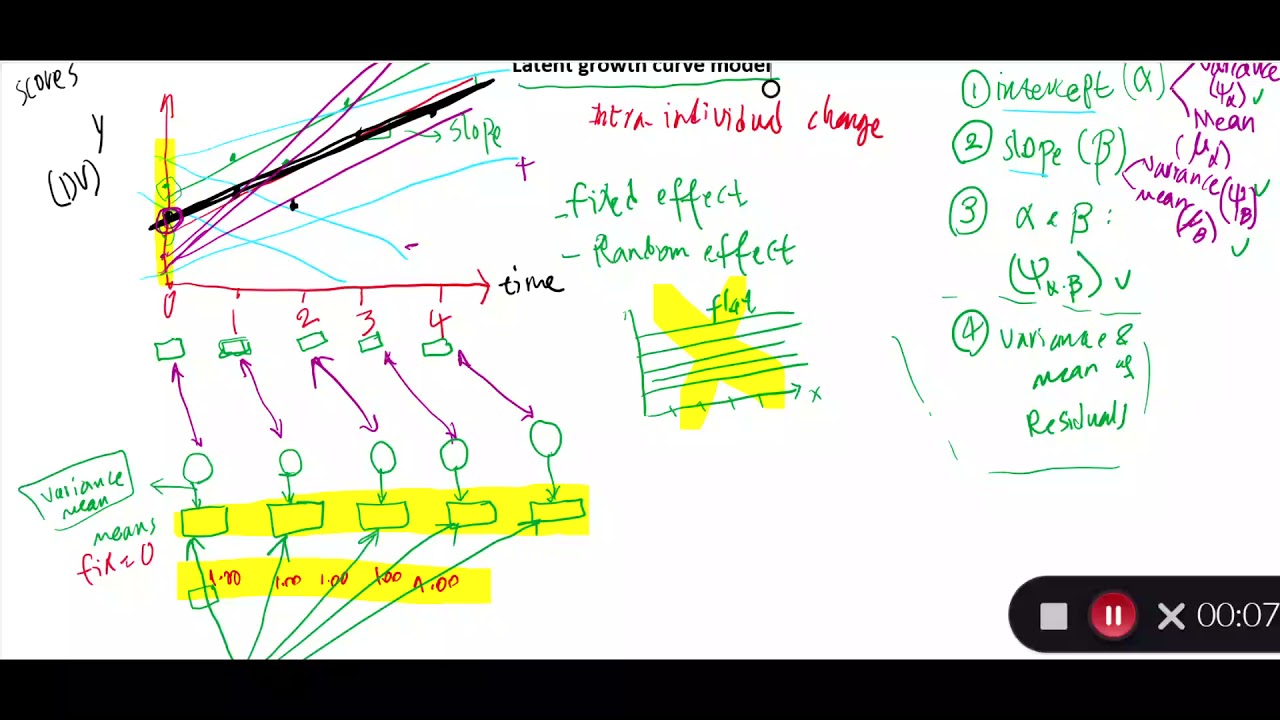 scores
y
(DV)
Latent growth curve model
Intra-individual change
slope
+
-
- fixed effect
- Random effect
flat
x
time
0 1 2 3 4
variance
mean
means
fix = 0
1.00 1.00 1.00 1.00 1.00
① intercept (α)
variance
(Ψα) ✓
Mean
(μα)
② slope (β)
variance (Ψβ) ✓
mean
(μβ)
✓
③ α & β :
(Ψα.β) ✓
④ variance &
mean of
Residuals
00:07